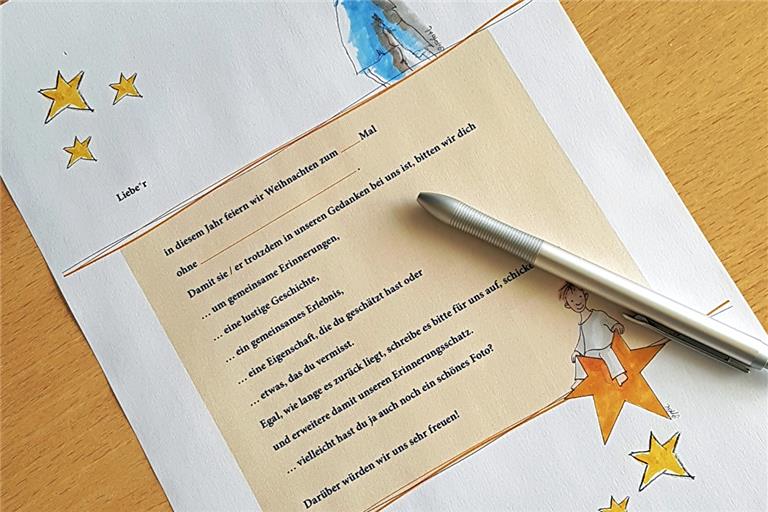 Liebe*r
in diesem Jahr feiern wir Weihnachten zum ____ Mal
ohne ____________________.
Damit sie / er trotzdem in unseren Gedanken bei uns ist, bitten wir dich
… um gemeinsame Erinnerungen,
… eine lustige Geschichte,
… ein gemeinsames Erlebnis,
… eine Eigenschaft, die du geschätzt hast oder
… etwas, das du vermisst.
Egal, wie lange es zurück liegt, schreibe es bitte für uns auf, schicke
und erweitere damit unseren Erinnerungsschatz.
… vielleicht hast du ja auch noch ein schönes Foto?
Darüber würden wir uns sehr freuen!